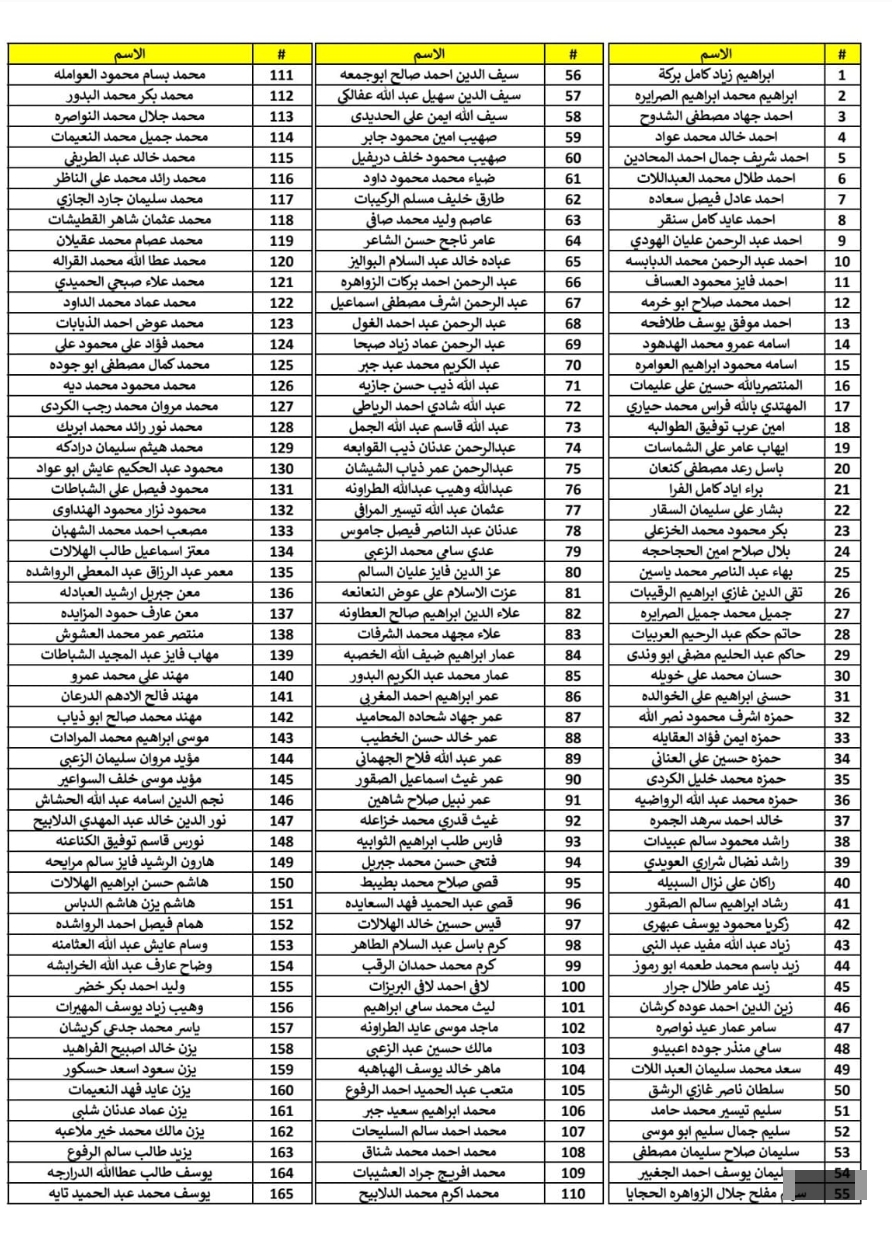 # الاسم
1 ابراهيم زياد كامل بركة
2 ابراهيم محمد ابراهيم الصرايره
3 احمد جهاد مصطفى الشدوح
4 احمد خالد محمد عواد
5 احمد شريف جمال احمد المحادين
6 احمد طلال محمد العبداللات
7 احمد عادل فيصل سعاده
8 احمد عايد كامل سنقر
9 احمد عبد الرحمن عليان الهودي
10 احمد عبد الرحمن محمد الدبابسه
11 احمد فايز محمود العساف
12 احمد محمد صلاح ابو خرمه
13 احمد موفق يوسف طلافحه
14 اسامه عمرو محمد الهدهود
15 اسامه محمود ابراهيم العوامره
16 المنتصربالله حسين علي عليمات
17 المهتدي بالله فراس محمد حياري
18 امين عرب توفيق الطوالبه
19 ايهاب عامر علي الشماسات
20 باسل رعد مصطفى كنعان
21 براء اياد كامل الفرا
22 بشار علي سليمان السقار
23 بكر محمود محمد الخزعلي
24 بلال صلاح امين الحجاحجه
25 بهاء عبد الناصر محمد ياسين
26 تقي الدين غازي ابراهيم الرقيبات
27 جميل محمد جميل الصرايره
28 حاتم حكم عبد الرحيم العربيات
29 حاكم عبد الحليم مضفي ابو وندي
30 حسان محمد علي خويله
31 حسني ابراهيم علي الخوالده
32 حمزه اشرف محمود نصر الله
33 حمزه ايمن فؤاد العقايله
34 حمزه حسين علي العناني
35 حمزه محمد خليل الكردي
36 حمزه محمد عبد الله الرواضيه
37 خالد احمد سرهد الجمره
38 راشد محمود سالم عبيدات
39 راشد نضال شراري العويدي
40 راكان علي نزال السبيله
41 رشاد ابراهيم سالم الصقور
42 زكريا محمود يوسف عبهري
43 زياد عبد الله مفيد عبد النبي
44 زيد باسم محمد طعمه ابو رموز
45 زيد عامر طلال جرار
46 زين الدين احمد عوده كرشان
47 سامر عمار عيد نواصره
48 سامي منذر جوده اعبيدو
49 سعد محمد سليمان العبد اللات
50 سلطان ناصر غازي الرشق
51 سليم تيسير محمد حامد
52 سليم جمال سليم ابو موسى
53 سليمان صلاح سليمان مصطفى
54 يوسف احمد الجغبير
55 مفلح جلال الزواهره الحجايا
# الاسم
56 سيف الدين احمد صالح ابوجمعه
57 سيف الدين سهيل عبد الله عفالكي
58 سيف الله ايمن علي الحديدي
59 صهيب امين محمود جابر
60 صهيب محمود خلف دريفيل
61 ضياء محمد محمود داود
62 طارق خليف مسلم الركيبات
63 عاصم وليد محمد صافي
64 عامر ناجح حسن الشاعر
65 عباده خالد عبد السلام البواليز
66 عبد الرحمن احمد بركات الزواهره
67 عبد الرحمن اشرف مصطفى اسماعيل
68 عبد الرحمن عبد احمد الغول
69 عبد الرحمن عماد زياد صبحا
70 عبد الكريم محمد عبد جبر
71 عبد الله ذيب حسن جازيه
72 عبد الله شادي احمد الرياطي
73 عبد الله قاسم عبد الله الجمل
74 عبدالرحمن عدنان ذيب القوابعه
75 عبدالرحمن عمر ذياب الشيشان
76 عبدالله وهيب عبدالله الطراونه
77 عثمان عبد الله تيسير المرافي
78 عدنان عبد الناصر فيصل جاموس
79 عدي سامي محمد الزعبي
80 عز الدين فايز عليان السالم
81 عزت الاسلام علي عوض النعانعه
82 علاء الدين ابراهيم صالح العطاونه
83 علاء مجهد محمد الشرفات
84 عمار ابراهيم ضيف الله الخصبه
85 عمار محمد عبد الكريم البدور
86 عمر ابراهيم احمد المغربي
87 عمر جهاد شحاده المحاميد
88 عمر خالد حسن الخطيب
89 عمر عبد الله فلاح الجهماني
90 عمر غيث اسماعيل الصقور
91 عمر نبيل صلاح شاهين
92 غيث قدري محمد خزاعله
93 فارس طلب ابراهيم الثوابيه
94 فتحي حسن محمد جبريل
95 قصي صلاح محمد بطيبط
96 قصي عبد الحميد فهد السعايده
97 قيس حسين خالد الهلالات
98 كرم باسل عبد السلام الطاهر
99 كرم محمد حمدان الرقب
100 لافي احمد لافي البريزات
101 ليث محمد سامي ابراهيم
102 ماجد موسى عايد الطراونه
103 مالك حسين عبد الزعبي
104 ماهر خالد يوسف الهباهبه
105 متعب عبد الحميد احمد الرفوع
106 محمد ابراهيم سعيد جبر
107 محمد احمد سالم السليحات
108 محمد احمد محمد شناق
109 محمد افريج جراد العشيبات
110 محمد اكرم محمد الدلابيح
# الاسم
111 محمد بسام محمود العوامله
112 محمد بكر محمد البدور
113 محمد جلال محمد النواصره
114 محمد جميل محمد النعيمات
115 محمد خالد عبد الطريفي
116 محمد رائد محمد علي الناظر
117 محمد سليمان جارد الجازي
118 محمد عثمان شاهر القطيشات
119 محمد عصام محمد عقيلان
120 محمد عطا الله محمد القراله
121 محمد علاء صبحي الحميدي
122 محمد عماد محمد الداود
123 محمد عوض احمد الذيابات
124 محمد فؤاد علي محمود علي
125 محمد كمال مصطفى ابو جوده
126 محمد محمود محمد ديه
127 محمد مروان محمد رجب الكردي
128 محمد نور رائد محمد ابريك
129 محمد هيثم سليمان درادكه
130 محمود عبد الحكيم عايش ابو عواد
131 محمود فيصل علي الشباطات
132 محمود نزار محمود الهنداوي
133 مصعب احمد محمد الشهبان
134 معتز اسماعيل طالب الهلالات
135 معمر عبد الرزاق عبد المعطي الرواشده
136 معن جبريل ارشيد العبادله
137 معن عارف حمود المزايده
138 منتصر عمر محمد العشوش
139 مهاب فايز عبد المجيد الشباطات
140 مهند علي محمد عمرو
141 مهند فالح الادهم الدرعان
142 مهند محمد صالح ابو ذياب
143 موسى ابراهيم محمد المرادات
144 مؤيد مروان سليمان الزعبي
145 مؤيد موسى خلف السواعير
146 نجم الدين اسامه عبد الله الحشاش
147 نور الدين خالد عبد المهدي الدلابيح
148 نورس قاسم توفيق الكناعنه
149 هارون الرشيد فايز سالم مرايحه
150 هاشم حسن ابراهيم الهلالات
151 هاشم يزن هاشم الدباس
152 همام فيصل احمد الرواشده
153 وسام عايش عبد الله العثامنه
154 وضاح عارف عبد الله الخرابشه
155 وليد احمد بكر خضر
156 وهيب زياد يوسف المهيرات
157 ياسر محمد جدعي كريشان
158 يزن خالد اصبيح الفراهيد
159 يزن سعود اسعد حسكور
160 يزن عايد فهد النعيمات
161 يزن عماد عدنان شلبي
162 يزن مالك محمد خير ملاعبه
163 يزيد طالب سالم الرفوع
164 يوسف طالب عطاالله الدرارجه
165 يوسف محمد عبد الحميد تايه